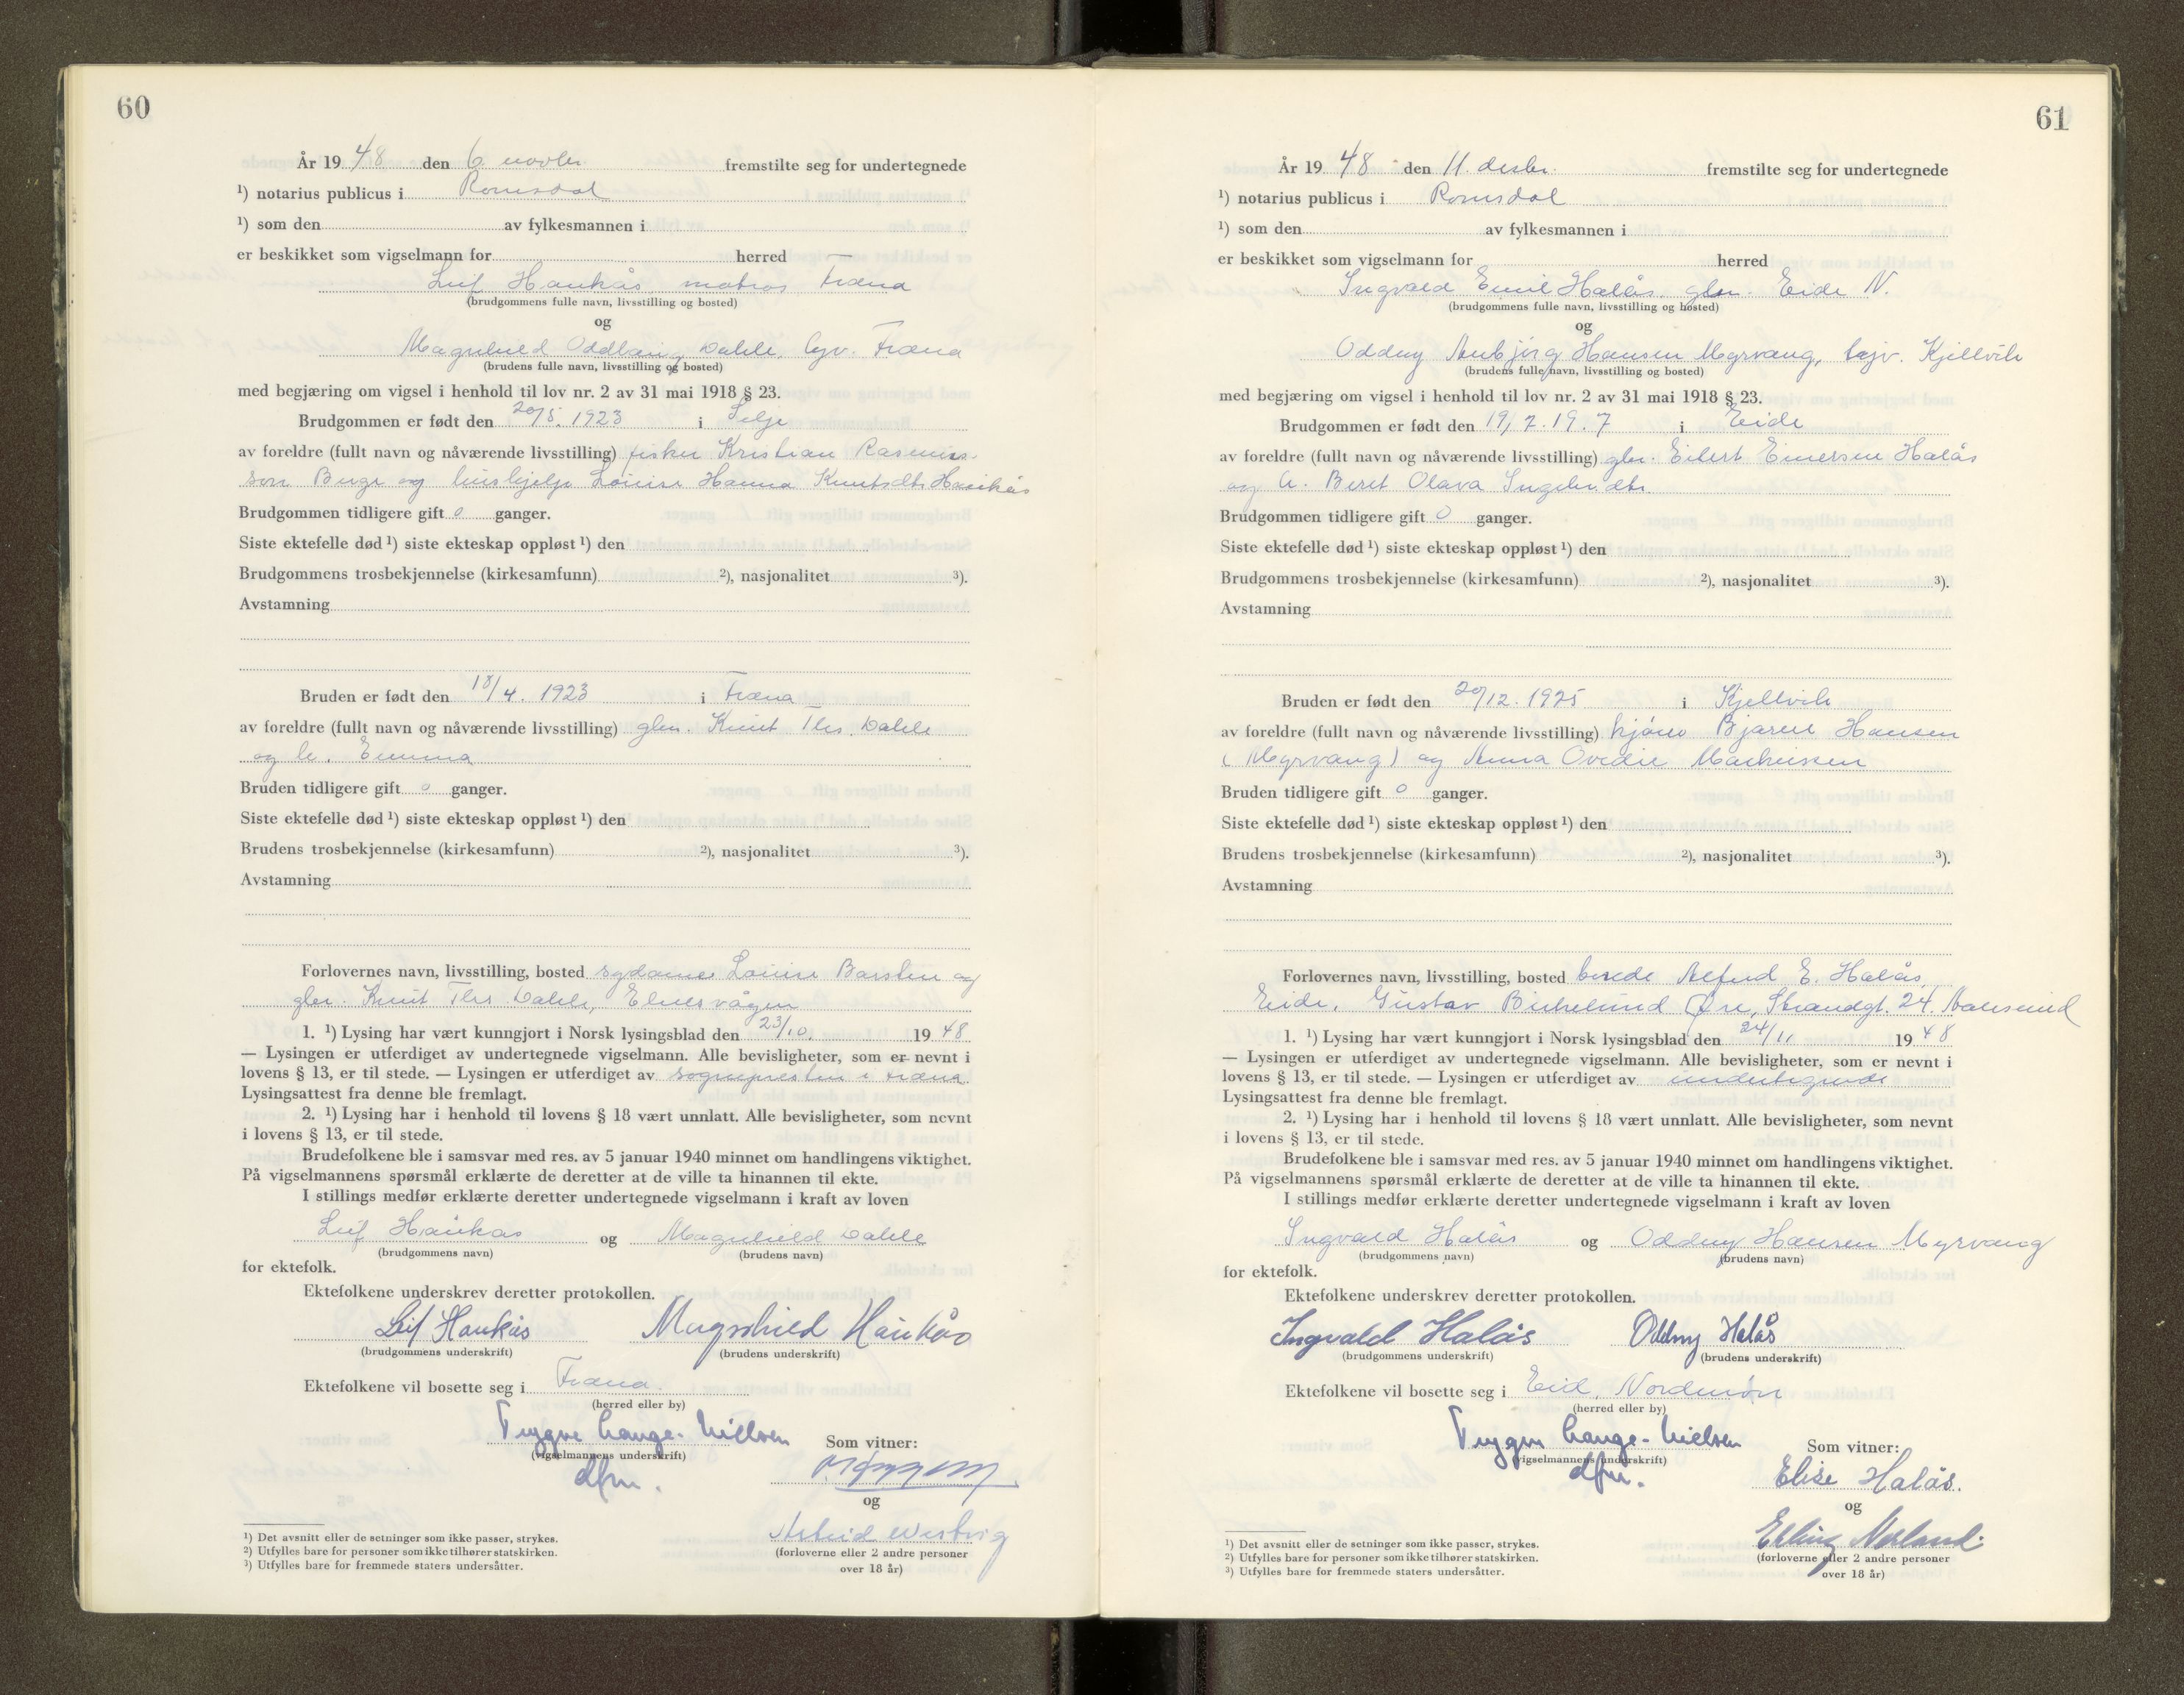 60
År 19 48 den 6 novbr. fremstilte seg for undertegnede
¹) notarius publicus i Romsdal
¹) som den av fylkesmannen i
er beskikket som vigselmann for herred
Leif Haukås matros Fræna
(brudgommens fulle navn, livsstilling og bosted)
og
Magnhild Oddlaug Dahle, Fræna
(brudens fulle navn, livsstilling og bosted)
med begjæring om vigsel i henhold til lov nr. 2 av 31 mai 1918 § 23.
Brudgommen er født den 20/5. 1923 i Selje
av foreldre (fullt navn og nåværende livsstilling) fisker Kristian Rasmus-
son og Louise Hanna Knutsdtr Haukås
Brudgommen tidligere gift 0 ganger.
Siste ektefelle død ¹) siste ekteskap oppløst ¹) den
Brudgommens trosbekjennelse (kirkesamfunn) ²), nasjonalitet ³).
Avstamning
Bruden er født den 18/4. 1923 i Fræna
av foreldre (fullt navn og nåværende livsstilling) gbr. Knut Ths. Dahle
og h. Emma
Bruden tidligere gift 0 ganger.
Siste ektefelle død ¹) siste ekteskap oppløst ¹) den
Brudens trosbekjennelse (kirkesamfunn) ²), nasjonalitet ³).
Avstamning
Forlovernes navn, livsstilling, bosted sydame Louise Barsten og
gbr. Knut Ths Dahle, Elnesvågen
1. ¹) Lysing har vært kunngjort i Norsk lysingsblad den 23/10. 19 48
— Lysingen er utferdiget av undertegnede vigselmann. Alle bevisligheter, som er nevnt i
lovens § 13, er til stede. — Lysingen er utferdiget av sognepresten i Fræna.
Lysingsattest fra denne ble fremlagt.
2. ¹) Lysing har i henhold til lovens § 18 vært unnlatt. Alle bevisligheter, som nevnt
i lovens § 13, er til stede.
Brudefolkene ble i samsvar med res. av 5 januar 1940 minnet om handlingens viktighet.
På vigselmannens spørsmål erklærte de deretter at de ville ta hinannen til ekte.
I stillings medfør erklærte deretter undertegnede vigselmann i kraft av loven
Leif Haukås og Magnhild Dahle
(brudgommens navn) (brudens navn)
for ektefolk.
Ektefolkene underskrev deretter protokollen.
Leif Haukås Magnhild Haukås
(brudgommens underskrift) (brudens underskrift)
Ektefolkene vil bosette seg i Fræna.
(herred eller by)
Trygve Lange-Nielsen
(vigselmannens underskrift)
dfm.
Som vitner:
og
Astrid
(forloverne eller 2 andre personer
over 18 år)
¹) Det avsnitt eller de setninger som ikke passer, strykes.
²) Utfylles bare for personer som ikke tilhører statskirken.
³) Utfylles bare for fremmede staters undersåtter.
61
År 19 48 den 11. desbr. fremstilte seg for undertegnede
¹) notarius publicus i Romsdal
¹) som den av fylkesmannen i
er beskikket som vigselmann for herred
Ingvald Emil Halås, gbr. Eide N.
(brudgommens fulle navn, livsstilling og bosted)
og
Oddny Annbjørg Hansen Myrvang, Kjellvik
(brudens fulle navn, livsstilling og bosted)
med begjæring om vigsel i henhold til lov nr. 2 av 31 mai 1918 § 23.
Brudgommen er født den 19/7.19.7 i Eide
av foreldre (fullt navn og nåværende livsstilling) gbr. Eilert Einersen Halås
og h. Beret Olava
Brudgommen tidligere gift 0 ganger.
Siste ektefelle død ¹) siste ekteskap oppløst ¹) den
Brudgommens trosbekjennelse (kirkesamfunn) ²), nasjonalitet ³).
Avstamning
Bruden er født den 20/12. 1925 i Kjellvik
av foreldre (fullt navn og nåværende livsstilling) Bjarne Hansen
(Myrvang) og Anna Ovedie
Bruden tidligere gift 0 ganger.
Siste ektefelle død ¹) siste ekteskap oppløst ¹) den
Brudens trosbekjennelse (kirkesamfunn) ²), nasjonalitet ³).
Avstamning
Forlovernes navn, livsstilling, bosted Alfred E. Halås,
Eide, Gustav Birkelund Øre, Strandgt. 24. Aalesund
1. ¹) Lysing har vært kunngjort i Norsk lysingsblad den 24/11 19 48
— Lysingen er utferdiget av undertegnede vigselmann. Alle bevisligheter, som er nevnt i
lovens § 13, er til stede. — Lysingen er utferdiget av undertegnede
Lysingsattest fra denne ble fremlagt.
2. ¹) Lysing har i henhold til lovens § 18 vært unnlatt. Alle bevisligheter, som nevnt
i lovens § 13, er til stede.
Brudefolkene ble i samsvar med res. av 5 januar 1940 minnet om handlingens viktighet.
På vigselmannens spørsmål erklærte de deretter at de ville ta hinannen til ekte.
I stillings medfør erklærte deretter undertegnede vigselmann i kraft av loven
Ingvald Halås og Oddny Hansen Myrvang
(brudgommens navn) (brudens navn)
for ektefolk.
Ektefolkene underskrev deretter protokollen.
Ingvald Halås Oddny Halås
(brudgommens underskrift) (brudens underskrift)
Ektefolkene vil bosette seg i Eid, Nordmøre
(herred eller by)
Trygve Lange-Nielsen
(vigselmannens underskrift)
dfm.
Som vitner:
Elise Halås.
og
Erling
(forloverne eller 2 andre personer
over 18 år)
¹) Det avsnitt eller de setninger som ikke passer, strykes.
²) Utfylles bare for personer som ikke tilhører statskirken.
³) Utfylles bare for fremmede staters undersåtter.